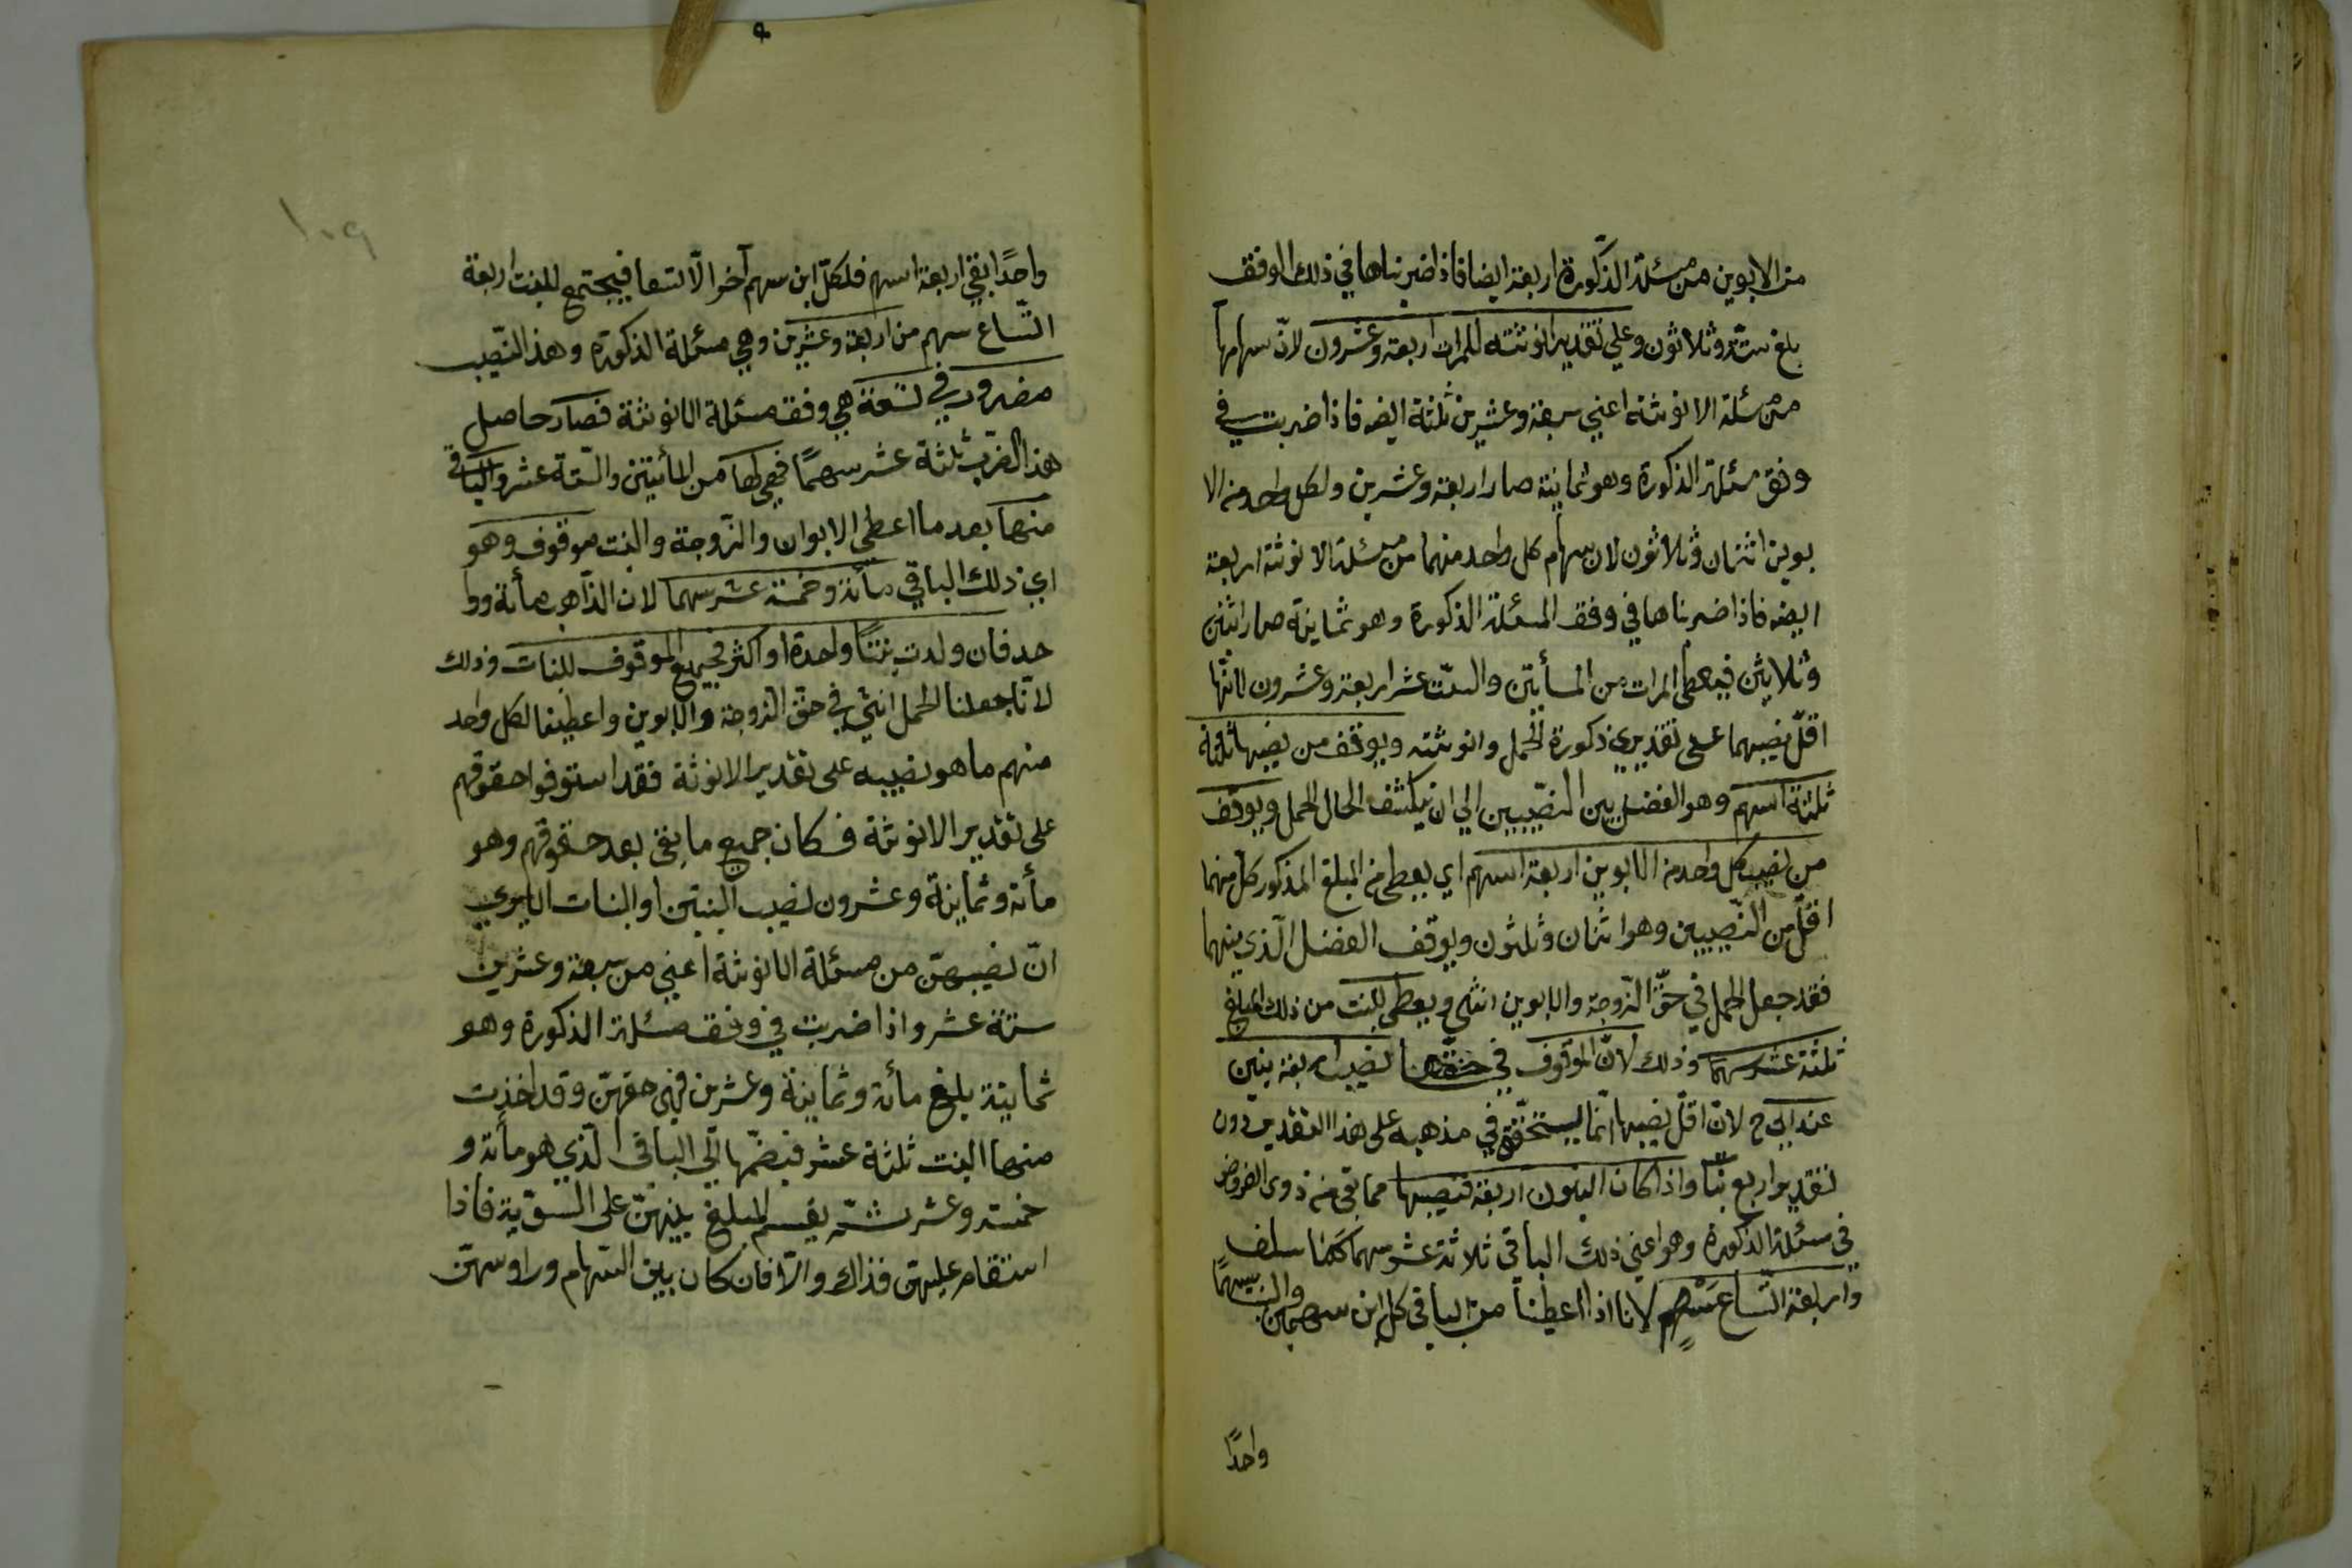 من الابوين من مسئلة الذكورة اربعة ايضا فاذا ضربناها في ذلك الوفق
بلغ ستة وثلاثون وعلي تقدير انوثته للمرات اربعة وعشرون لانّ سهامها
من مسئلة الانوثة اعني سبعة وعشرين ثلثة ايضه فاذا ضربت في
وفق مسئلة الذكورة وهو ثمانية صار اربعة وعشرين ولكل واحد من الا
بوين اثنان وثلاثون لان سهام كل واحد منهما من مسئلة الانوثة اربعة
ايضه فاذا ضربناها في وفق المسئلة الذكورة وهو ثمانية صار اثنين
وثلاثين فيعطى للمرات من المأتين والستّ عشر اربعة وعشرون لانّها
اقلّ نصيبهما على تقديري ذكورة الحمل وانوثته ويوقف من نصيبها ثلاثة
ثلثة اسهم وهو الفضل بين النصّيبين الي ان ينكشف الحال الحمل ويوقف
من نصيب كل واحد من الابوين اربعة اسهم اي يعطى من المبلغ المذكور كل منهما
اقلّ من النّصيبين وهو اثنان وثلثون ويوقف الفضل الّذي بينهما
فقد جعل الحمل في حقّ الزّوجة والابوين انثى ويعطى للبنت من ذلك المبلغ
ثلثة عشر سهما وذلك لانّ الموقوف في حقّها نصيب اربعة بنين
عند ابي ح لانّ اقلّ نصيبها انّما يستحقّ في مذهبه على هذا التقدير دون
تقدير اربع بنّا واذا كان البنون اربعة فنصيبها مما بقي من ذوى الفروض
في مسئلة الذكورة وهو اعني ذلك الباقي ثلاثة عشر سهما كما سلف
واربعة اتّساع سهم لانا اذا اعطينا من الباقي كل ابن سهمين والبنت سهمًا
واحدًا
واحدًا بقي اربعة اسهم فلكلّ ابن سهم آخر الّا تسعا فيجتمع للبنت اربعة
اتّساع سهم من اربعة وعشرين وهي مسئلة الذكورة وهذ النّصيب
مضروب في تسعة هي وفق مسئلة الانوثة فصار حاصل
هذ الضرب ثلثة عشر سهمًا فهي لها من المأتين والستّة عشر والباقي
منها بعد ما اعطى الابوان والزّوجة والبنت موقوف وهو
اي ذلك الباقي مأئة وخمسة عشر سهما لان الذّاهب مأئة ووا
حد فان ولدت بنتًا واحدة او اكثر فجميع الموقوف للبنات وذلك
لانّا جعلنا الحمل انثى في حقّ الزوجة والابوين واعطينا لكل واحد
منهم ما هو نصيبه على تقدير الانوثة فقد استوفوا حقوقهم
على تقدير الانوثة فكان جميع ما بقى بعد حقوقهم وهو
مأئة وثمانية وعشرون نصيب البنتين او البنات الا يرى
انّ نصيبهنّ من مسئلة الانوثة اعني من سبعة وعشرين
ستة عشر واذا ضربت في وفق مسئلة الذكورة وهو
ثمانية بلغ مأئة وثمانية وعشرين فهى حقهنّ وقد اخذت
منها البنت ثلثة عشر فيضمّها الى الباقي الّذي هو مأئة و
خمسة وعشر ثمّ يقسم المبلغ بينهنّ على السويّة فاذا
استقام عليهنّ فذاك والّا فان كان بين السّهام وراوسهنّ